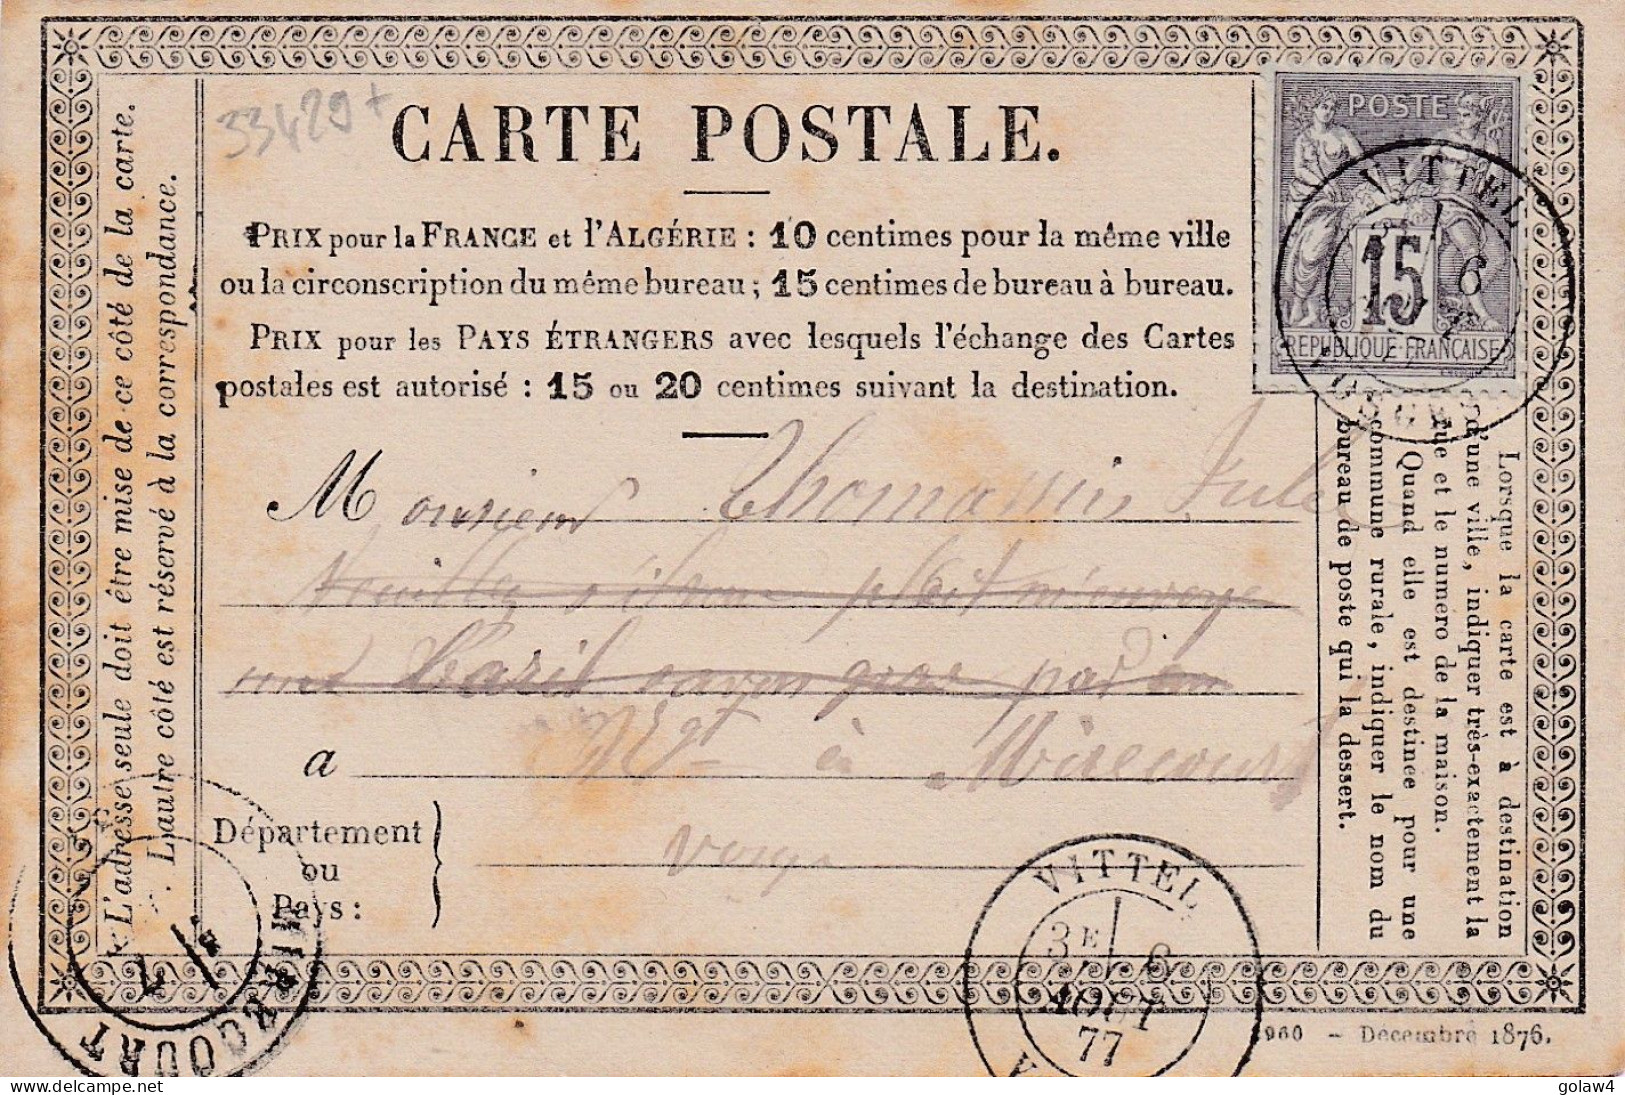 33429+
CARTE POSTALE.
PRIX pour la FRANCE et l'ALGÉRIE : 10 centimes pour la même ville
ou la circonscription du même bureau ; 15 centimes de bureau à bureau.
PRIX pour les PAYS ÉTRANGERS avec lesquels l'échange des Cartes
postales est autorisé : 15 ou 20 centimes suivant la destination.
POSTE
15
REPUBLIQUE FRANÇAISE
VITTEL
6
Monsieur Thomassin Jules
Veuillez s'il vous plait m'envoyer
un Baril savon gros par
Mgt à Mirecourt
a
Département
ou
Pays :
Vosges
L'adresse seule doit être mise de ce côté de la carte.
L'autre côté est réservé à la correspondance.
Lorsque la carte est à destination
d'une ville, indiquer très-exactement la
rue et le numéro de la maison.
Quand elle est destinée pour une
commune rurale, indiquer le nom du
bureau de poste qui la dessert.
MIRECOURT
7
VITTEL
3E 6
AOUT
77
960 - Décembre 1876.
golaw4